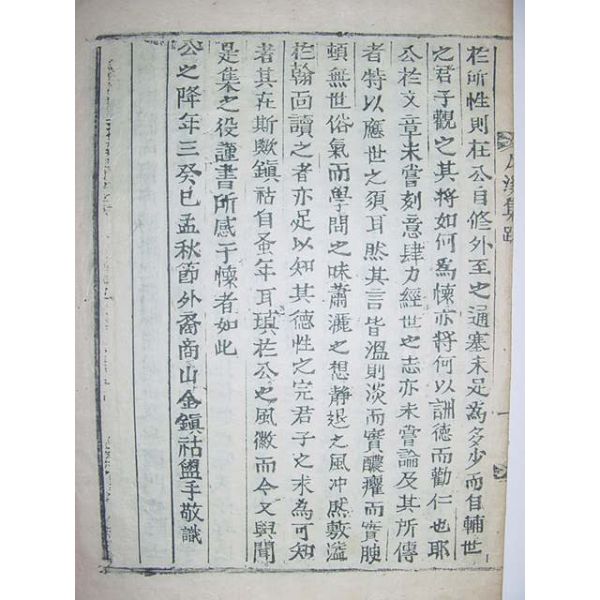 溪集跋
於所性則在公自修外至之通塞未足爲多少而自輔世
之君子觀之其將如何爲懷亦將何以訓德而勸仁也耶
公於文章未嘗刻意肆力經世之志亦未嘗論及其所傳
者特以應世之須耳然其言皆溫則淡而實醲癯而實腴
頓無世俗氣而學問之味蕭灑之想靜退之風冲然敷溢
於翰面讀之者亦足以知其德性之完君子之求爲可知
著其在斯歟鎭祜自蚤年耳瑱於公之風徽而今又與聞
是集之役謹書所感于懷者如此
公之降年三癸巳孟秋節外裔商山金鎭祜盥手敬識